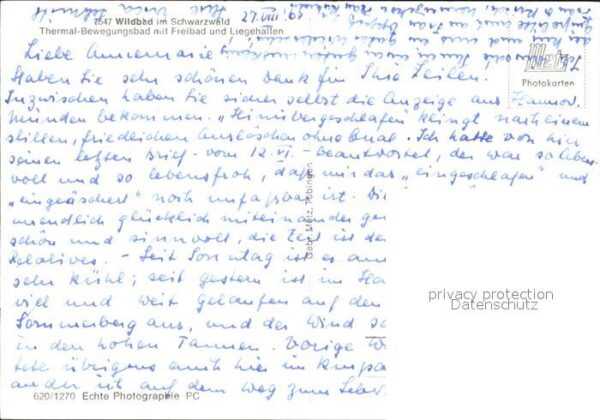 7547 Wildbad im Schwarzwald
Thermal-Bewegungsbad mit Freibad und Liegehallen
Metz
Photokarten
Liebe Annemarie
Haben Sie sehr schönen Dank für Ihre Zeilen.
Inzwischen haben Sie sicher selbst die Anzeige aus Hannov.
Münden bekommen. "Hinübergeschlafen" klingt nach einem
stillen, friedlichen Auslöschen ohne Qual. Ich hatte von ihm
seinen letzten Brief - vom 12. VI. - beantwortet, der war so liebe-
voll und so lebensfroh, daß mir das "eingeschlafen" und
"eingeäschert" noch unfaßbar ist. Die
unendlich glücklich miteinander ge
schön und sinnvoll, die Zeit ist de
Relatives. - Seit Sonntag ist es au
sehr kühl; seit gestern ist im Ha
viel und weit gelaufen auf den
Sommerberg aus, und der Wind
in den hohen Tannen. Vorige
übrigens auch hier im Kurpa
auf dem Weg zum
Gebr. Metz, Tübingen
620/1270 Echte Photographie PC
privacy protection
Datenschutz